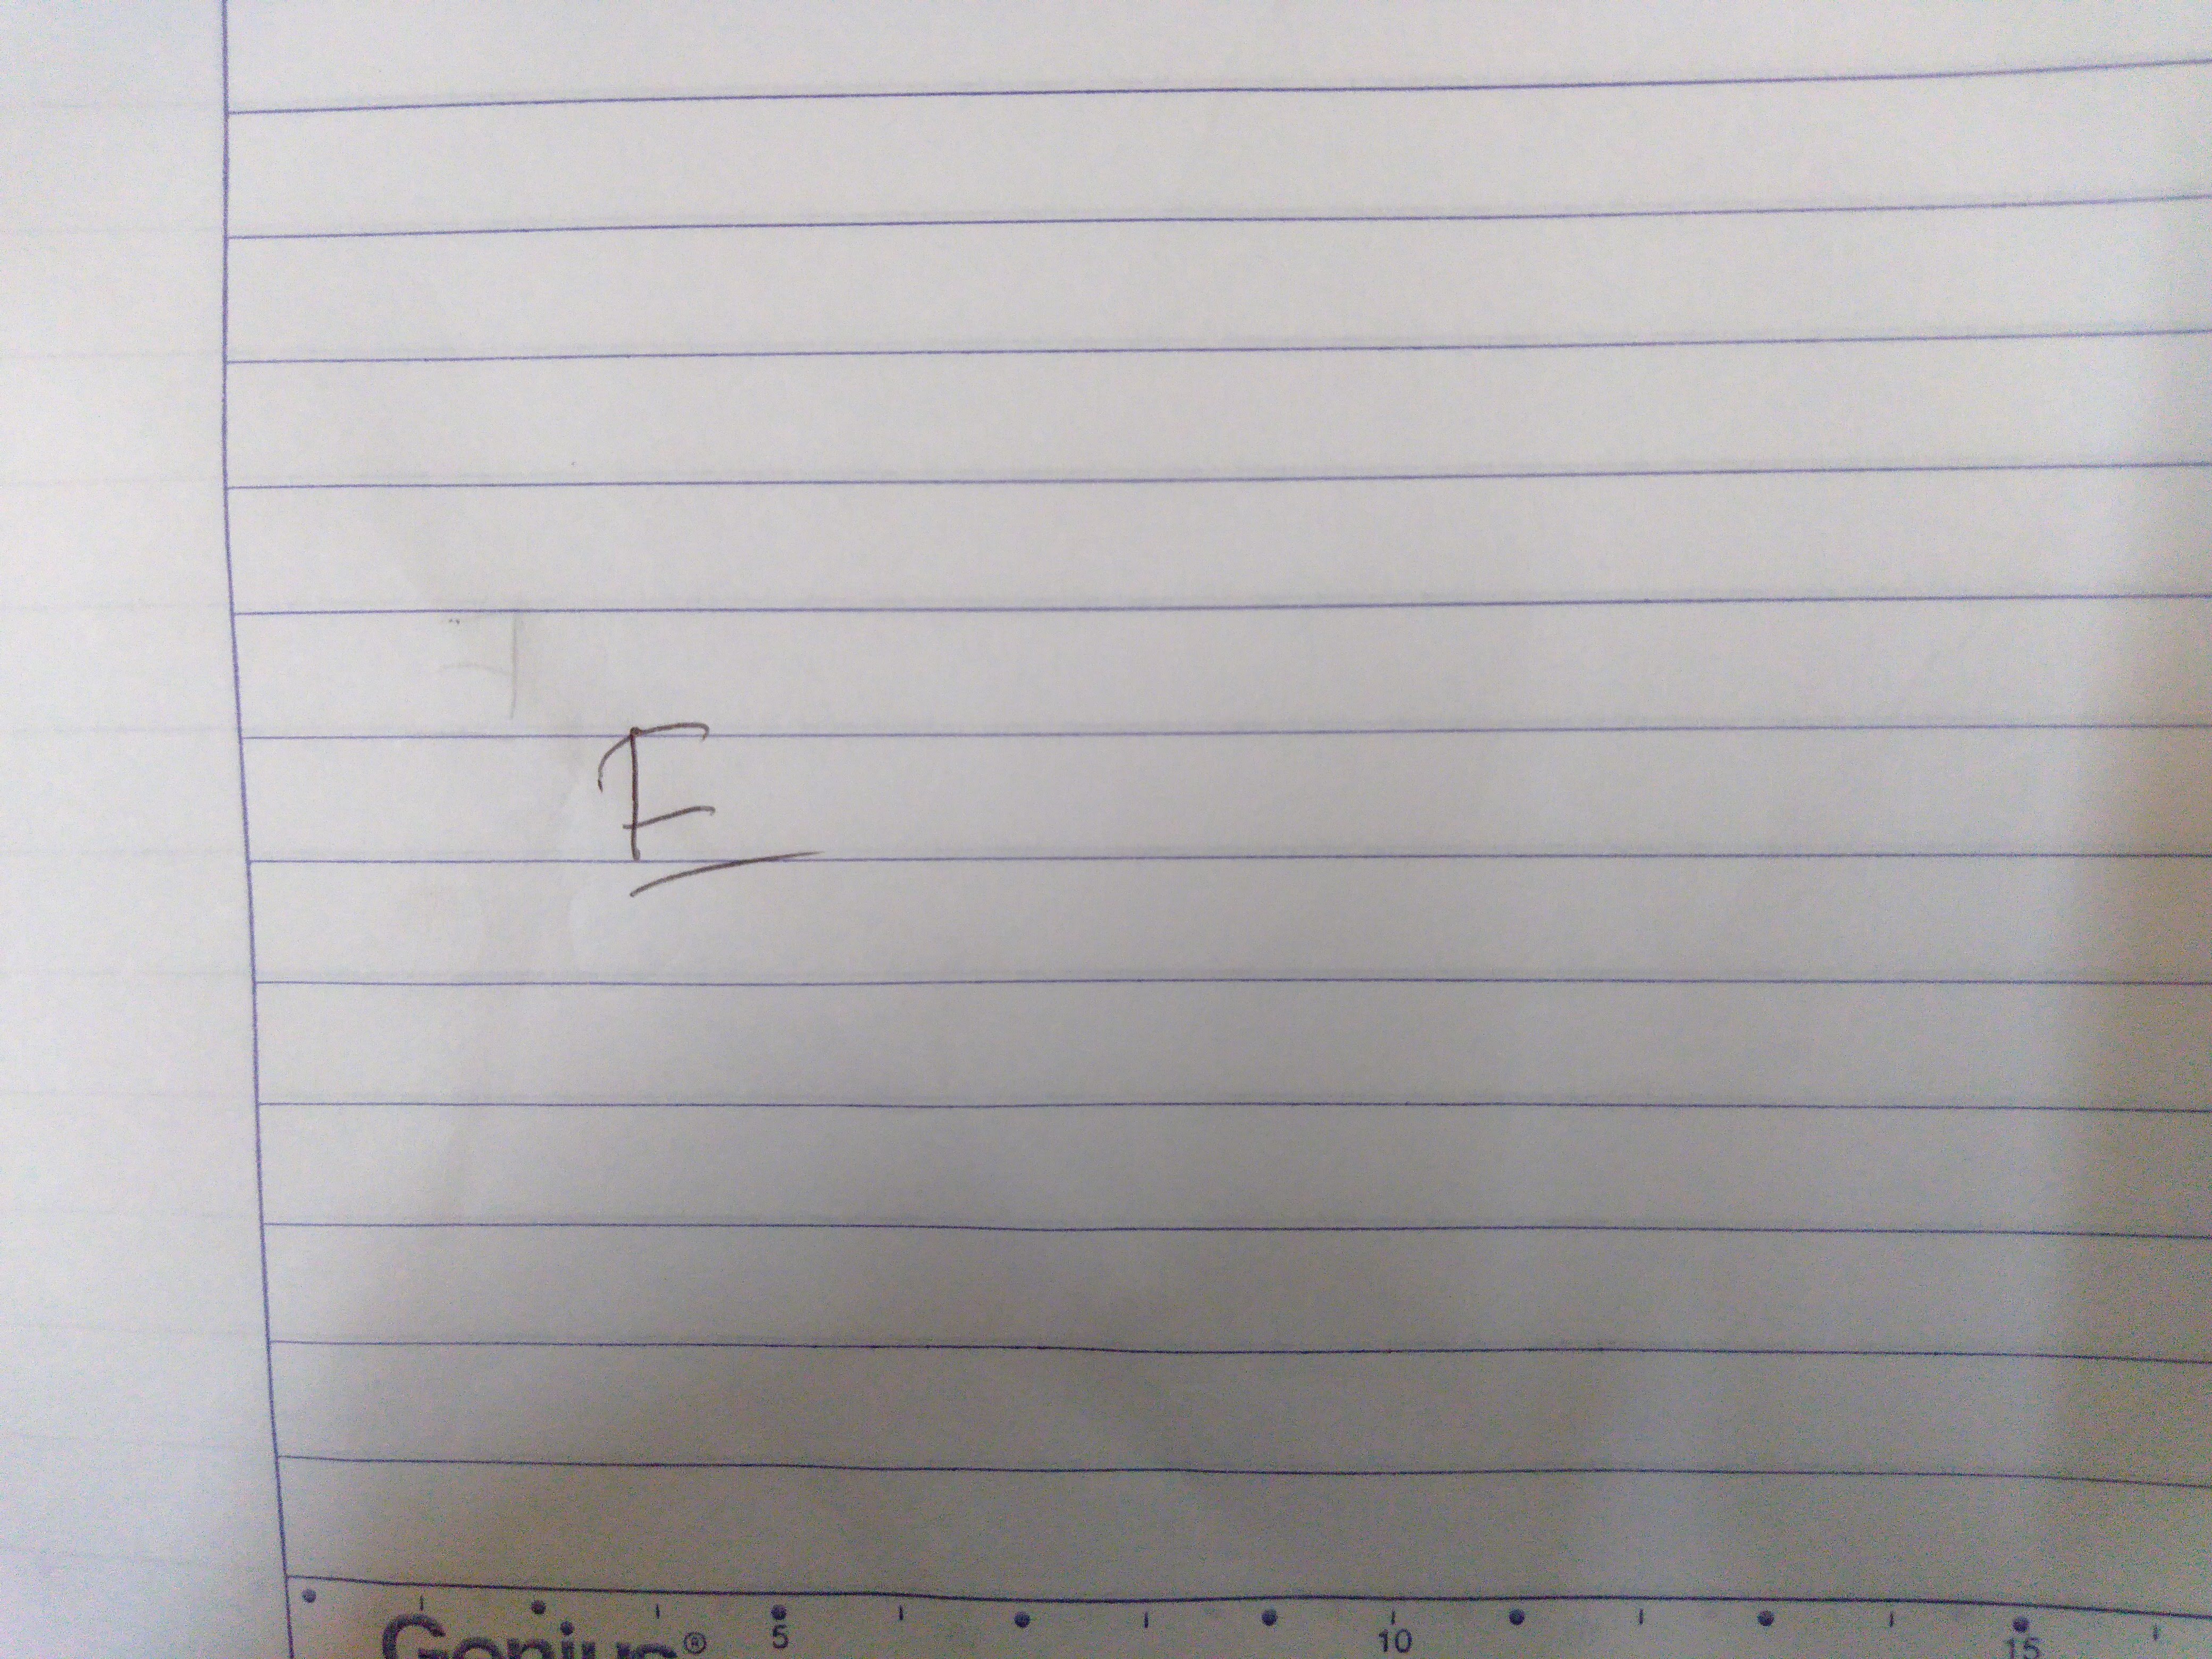 F
Genius® 5 10 15